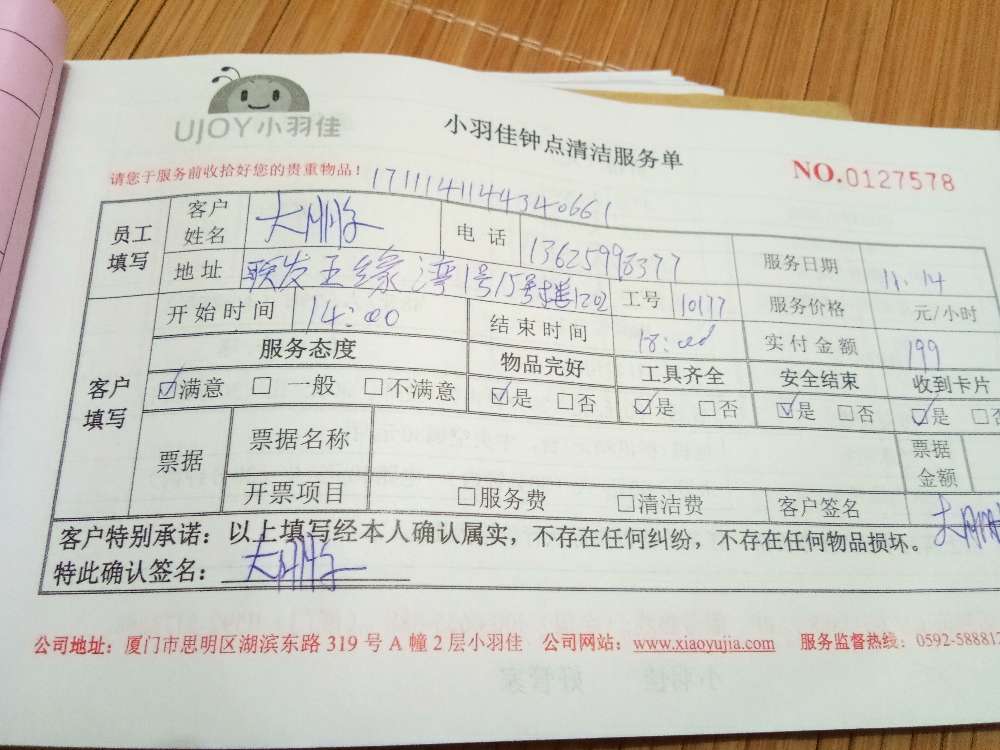 UJOY小羽佳
小羽佳钟点清洁服务单
请您于服务前收拾好您的贵重物品!
NO.0127578
1711141144340661
员工填写 客户姓名 电话 13625998377 服务日期 11.14
地址 联发五缘湾1号15号楼1202 工号 10177 服务价格 元/小时
客户填写 开始时间 14:00 结束时间 18:00 实付金额 199
服务态度 物品完好 工具齐全 安全结束 收到卡片
☑满意 □一般 □不满意 ☑是 □否 ☑是 □否 ☑是 □否 ☑是 □否
票据 票据名称 票据金额
开票项目 □服务费 □清洁费 客户签名
客户特别承诺:以上填写经本人确认属实,不存在任何纠纷,不存在任何物品损坏。
特此确认签名:
公司地址:厦门市思明区湖滨东路 319 号 A 幢 2 层小羽佳 公司网站:www.xiaoyujia.com 服务监督热线:0592-588812